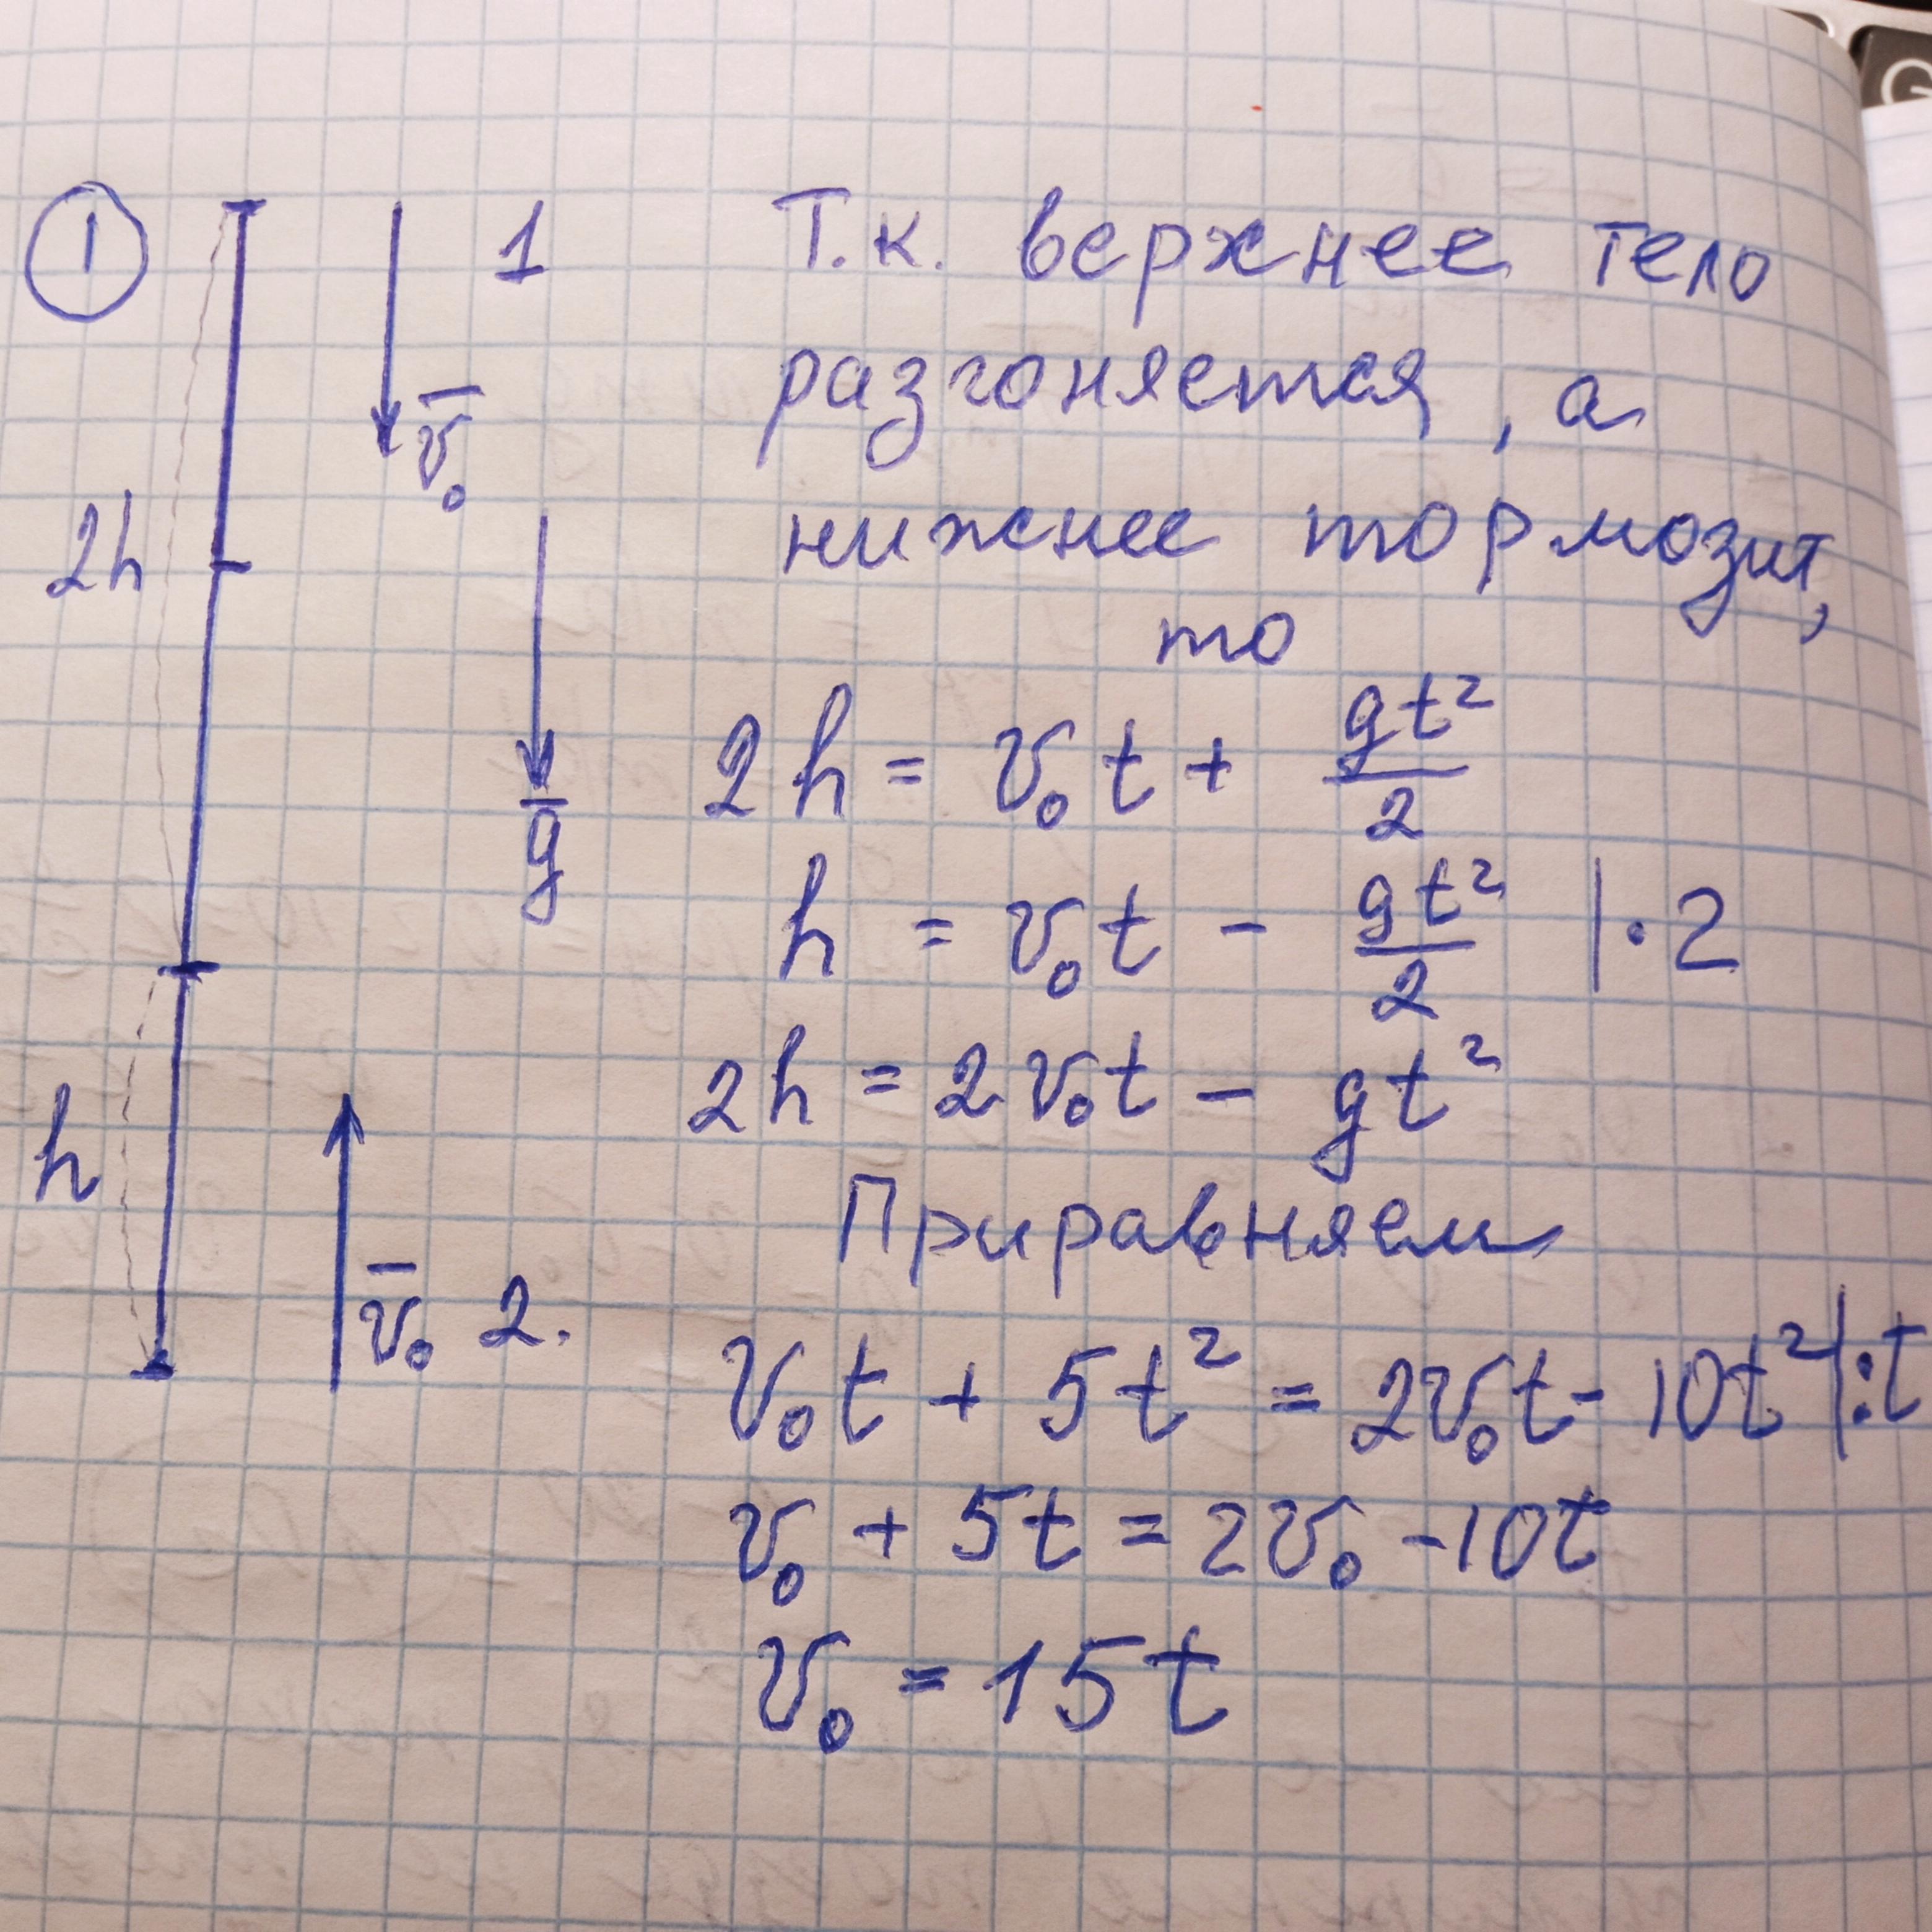 ①
1
v̅₀
2h
g̅
h
v̅₀ 2.
Т.к. верхнее тело
разгоняется, а
нижнее тормозит,
то
2h = v₀t + gt²/2
h = v₀t - gt²/2 |·2
2h = 2v₀t - gt²
Приравняем
v₀t + 5t² = 2v₀t - 10t² |:t
v₀ + 5t = 2v₀ - 10t
v₀ = 15t
G